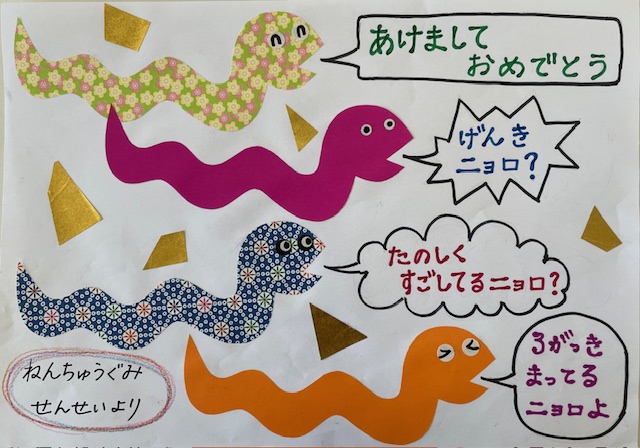 あけまして
おめでとう
げんき
ニョロ?
たのしく
すごしてるニョロ?
3がっき
まってる
ニョロよ
ねんちゅうぐみ
せんせいより